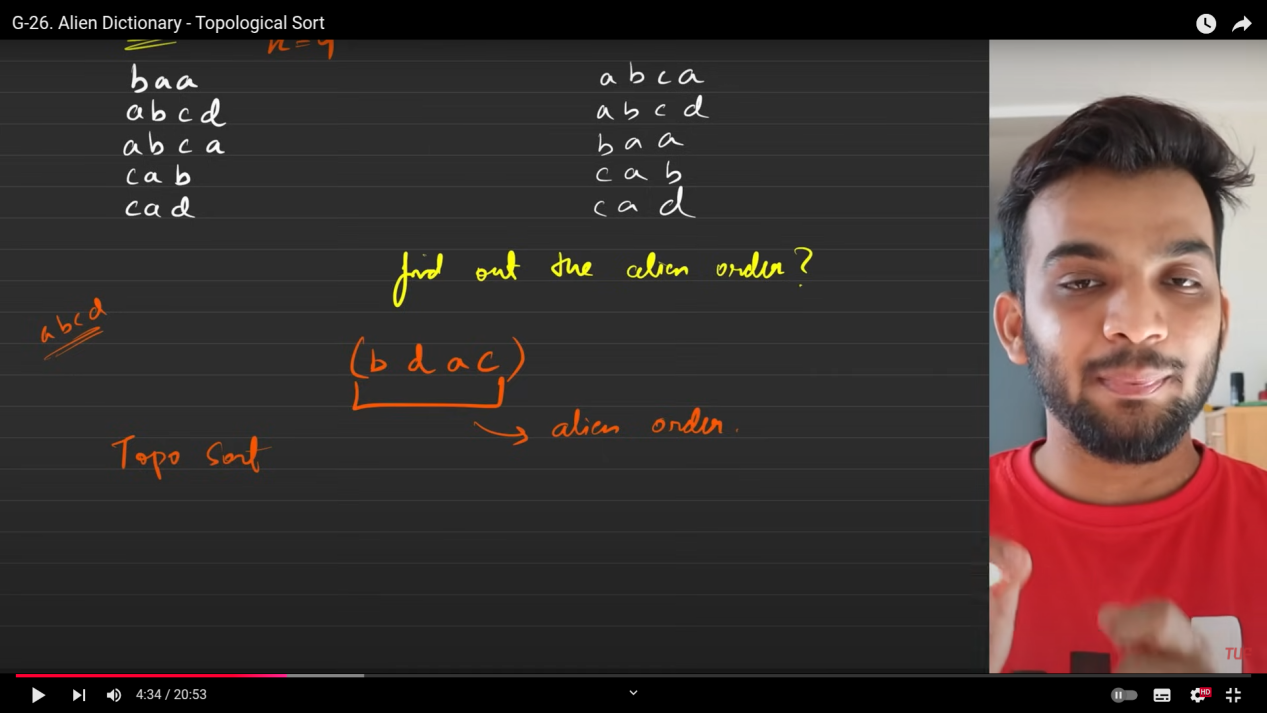 G-26. Alien Dictionary - Topological Sort
n = 4
baa
abcd
abca
cab
cad
abca
abcd
baa
cab
cad
find out the alien order?
abcd
(b d a c)
→ alien order.
Topo Sort
TUF
4:34 / 20:53
HD